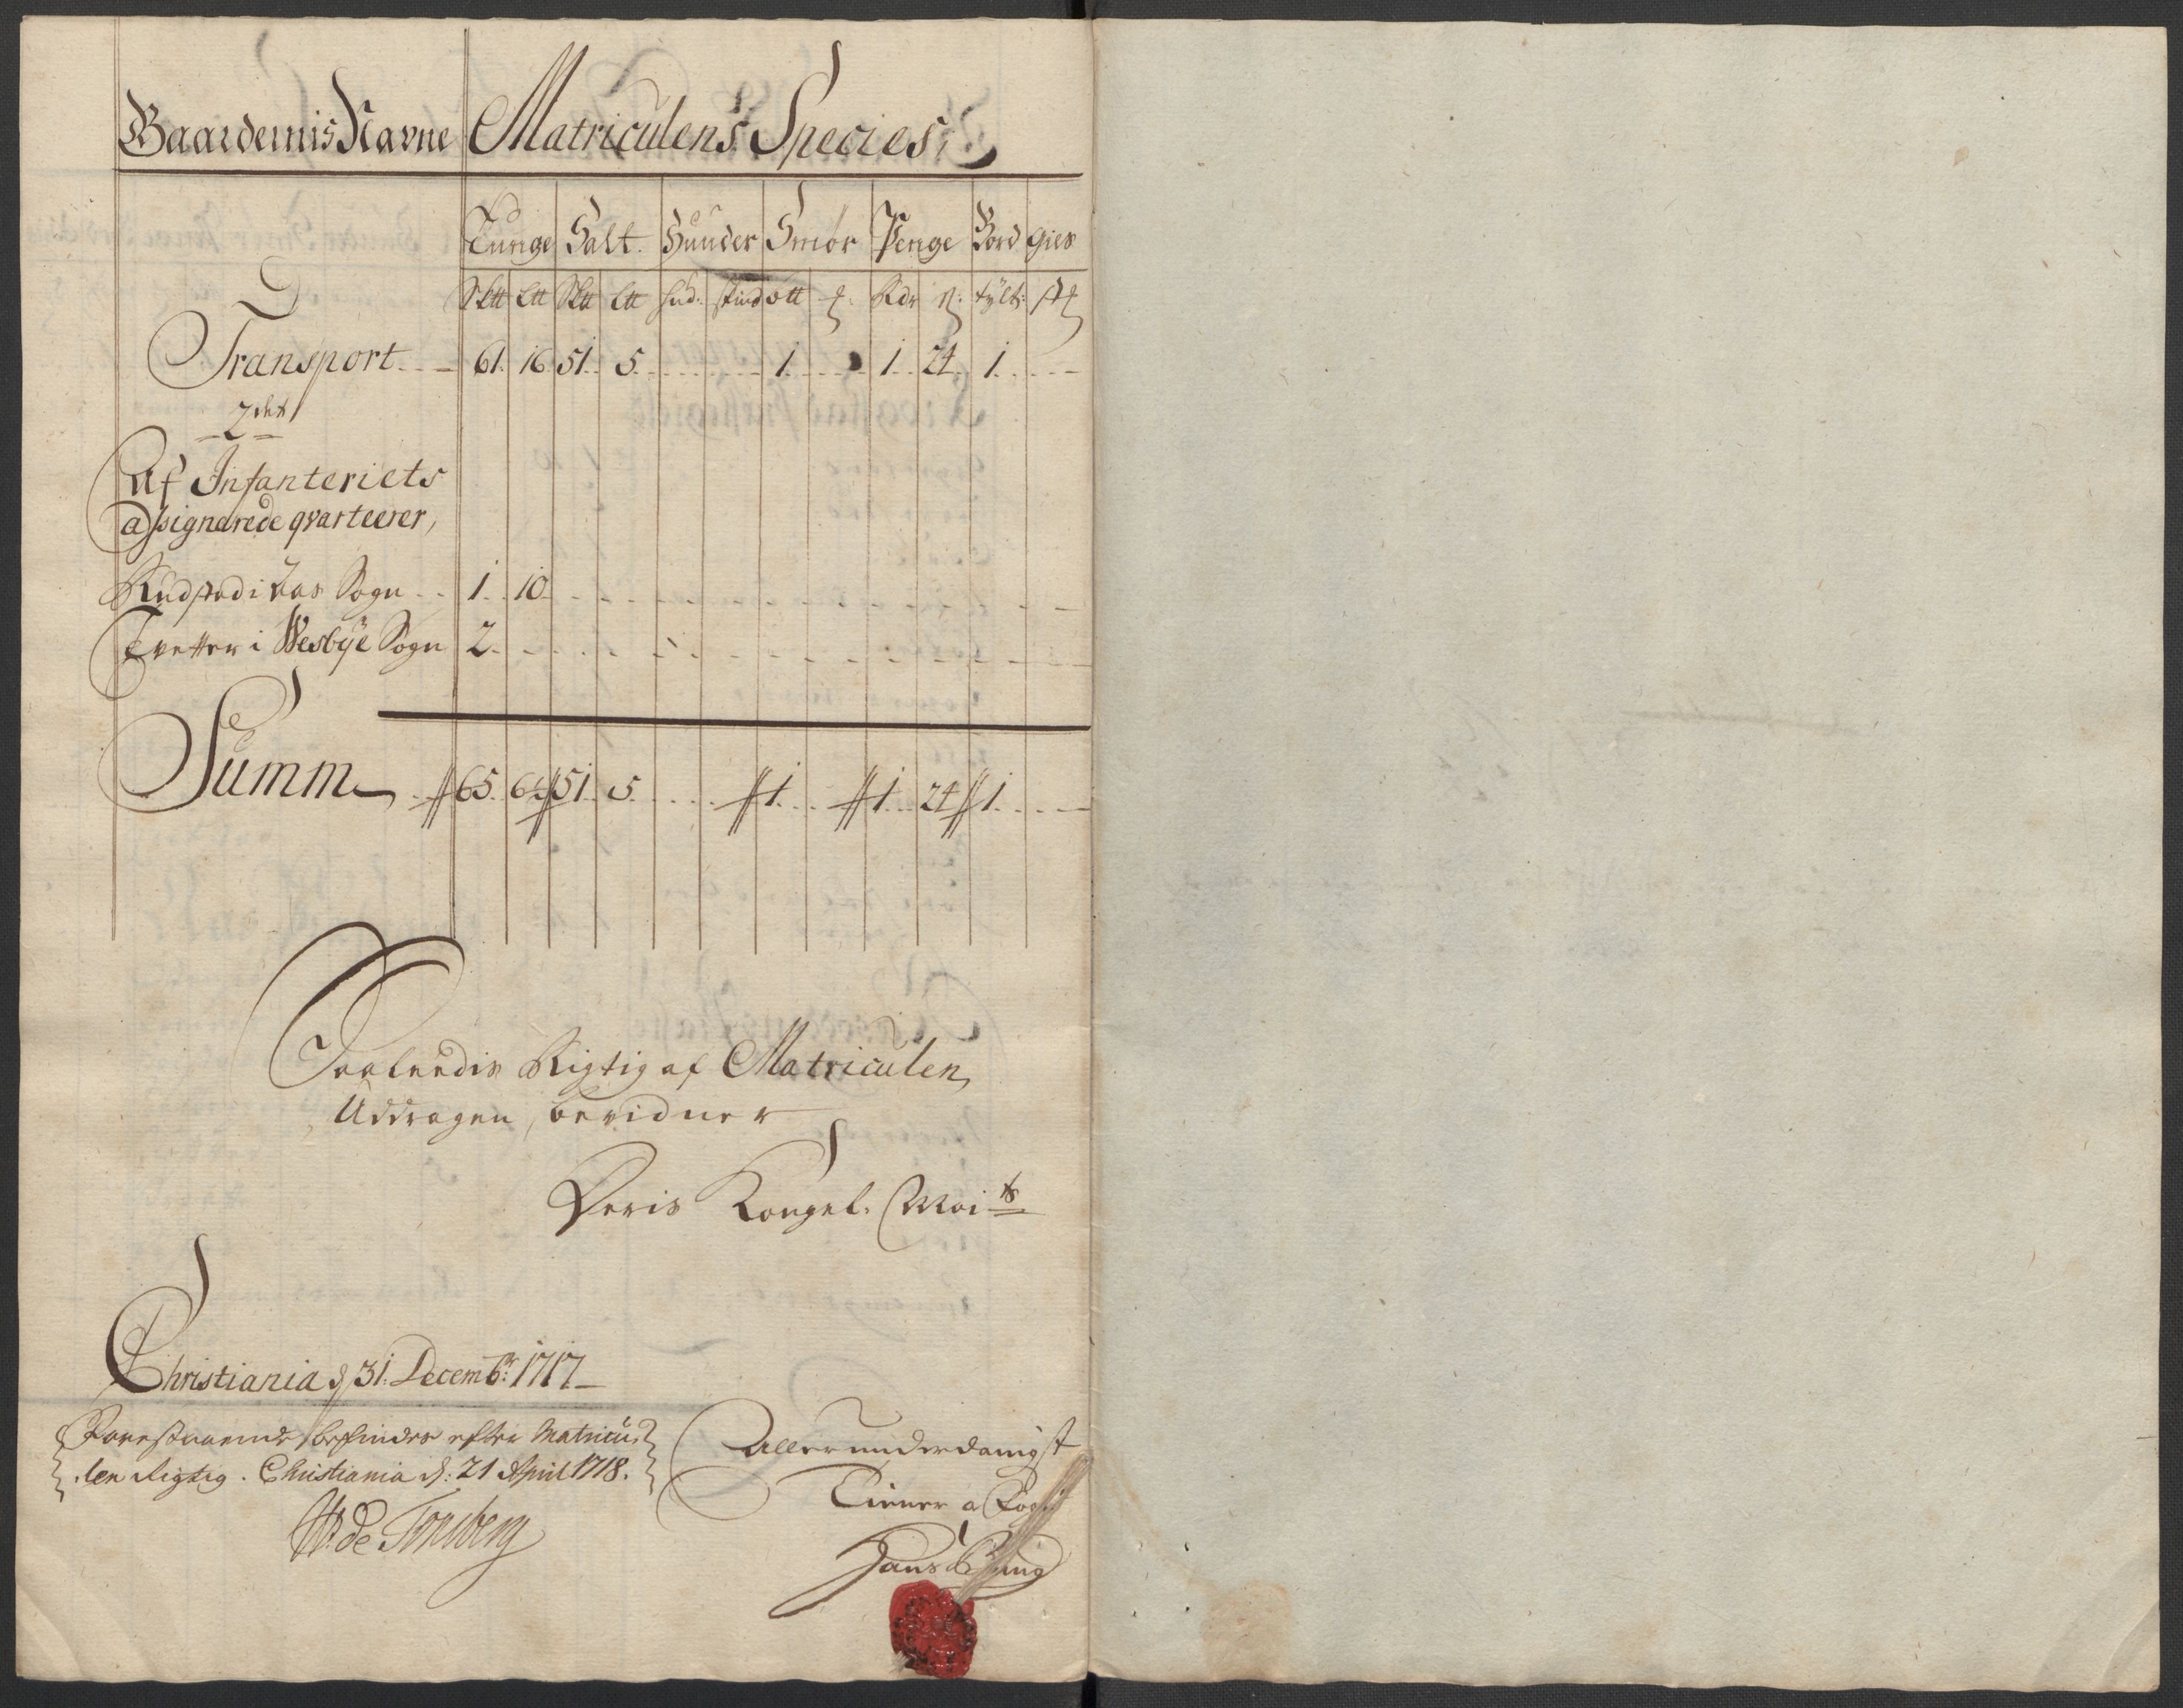 Gaardernis Navne Matriculens Species,
Tunge Salt. Huuder Smør Penge Bord Gies
Sktt Ltt Sktt Ltt hud: skind ott Rdr ß: tylt:
Transport 61. 16. 51. 5. 1. 1. 24. 1.
2det
Af Infanteriets
assignerede qvarteerer,
Rudstad i Aas Sogn 1. 10
Tvetter i Wesbye Sogn 2.
Summ 65. 6 51. 5. 1. 1. 24 1.
Saaledis Rigtig af Matriculen
Uddragen, bevidner
Deris Kongel: Mai ts
Christiania d 31. Decembr: 1717
Forestaaende befindes efter Matricu-
len Rigtig. Christiania d: 21 April 1718.
W. de Tonsberg
Allerunderdanigst
Tiener a Fogt
Hans